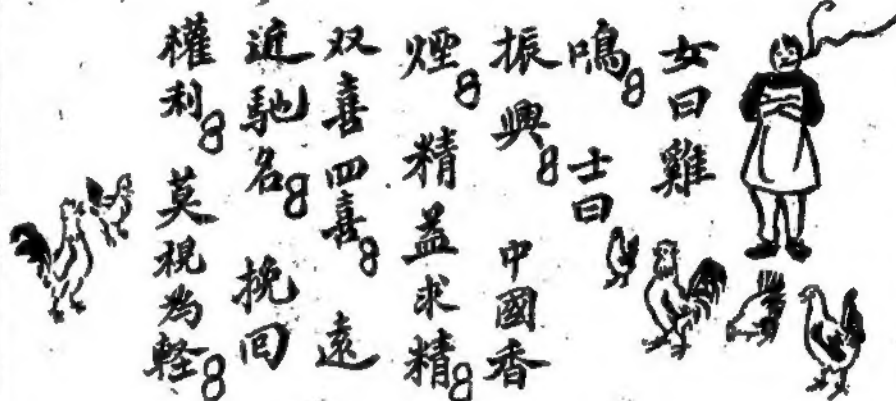 女曰雞
鳴。士曰
振興。中國香
煙。精益求精。
双喜四喜。遠
近馳名。挽回
權利。莫視為軽。